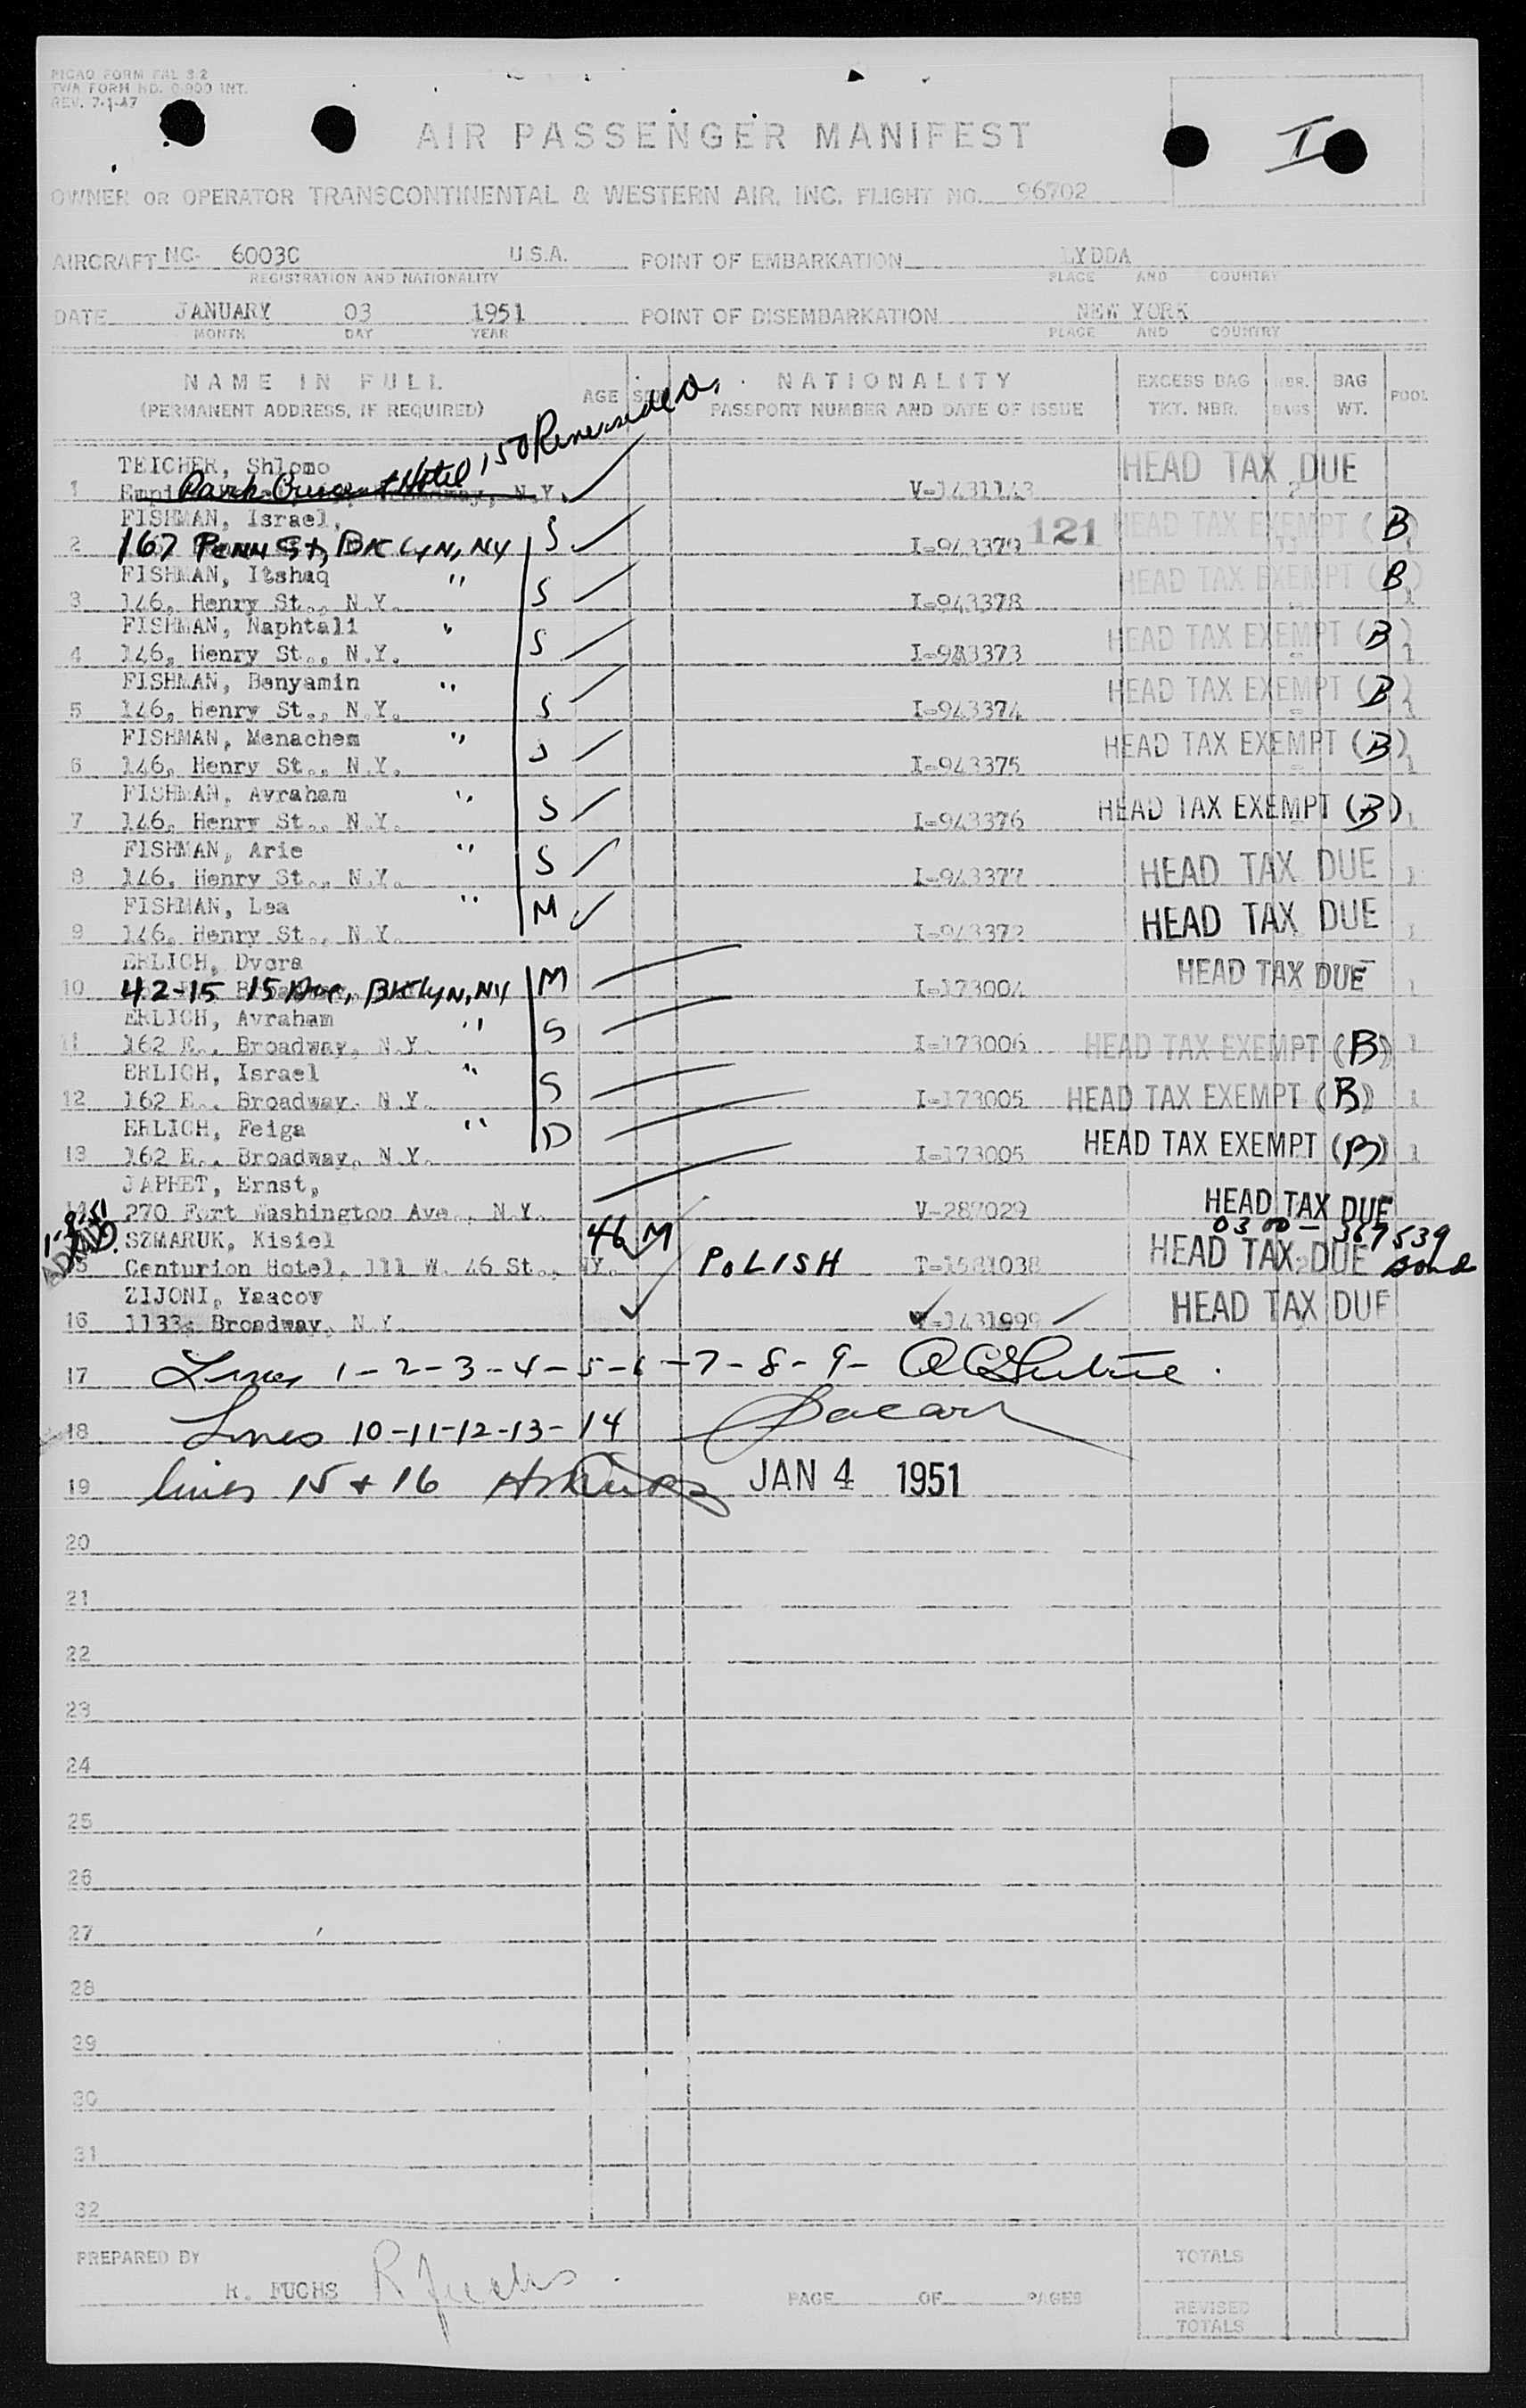 PICAO FORM FAL 3.2
TWA FORM NO. 0-900 INT.
REV. 7-1-47
AIR PASSENGER MANIFEST
I
OWNER OR OPERATOR TRANSCONTINENTAL & WESTERN AIR, INC. FLIGHT NO. 96702
AIRCRAFT NC- 6003C U.S.A. POINT OF EMBARKATION LYDDA
REGISTRATION AND NATIONALITY PLACE AND COUNTRY
DATE JANUARY 03 1951 POINT OF DISEMBARKATION NEW YORK
MONTH DAY YEAR PLACE AND COUNTRY
NAME IN FULL AGE SEX NATIONALITY EXCESS BAG NBR. BAG POOL
(PERMANENT ADDRESS, IF REQUIRED) PASSPORT NUMBER AND DATE OF ISSUE TKT. NBR. BAGS WT.
TEICHER, Shlomo HEAD TAX DUE
1 Park Crescent Hotel, 150 Riverside D. N.Y. V-1431143
FISHMAN, Israel, 121 HEAD TAX EXEMPT (B)
2 167 Penn St, BKLYN, NY S I-943379
FISHMAN, Itshaq " HEAD TAX EXEMPT (B)
3 146, Henry St., N.Y. S I-943378 1
FISHMAN, Naphtali " HEAD TAX EXEMPT (B)
4 146, Henry St., N.Y. S I-943373 1
FISHMAN, Benyamin " HEAD TAX EXEMPT (B)
5 146, Henry St., N.Y. S I-943374 1
FISHMAN, Menachem " HEAD TAX EXEMPT (B)
6 146, Henry St., N.Y. S I-943375 1
FISHMAN, Avraham " HEAD TAX EXEMPT (B)
7 146, Henry St., N.Y. S I-943376 1
FISHMAN, Arie " HEAD TAX DUE
8 146, Henry St., N.Y. S I-943377 1
FISHMAN, Lea " M HEAD TAX DUE
9 146, Henry St., N.Y. I-943372 1
ERLICH, Dvora HEAD TAX DUE
10 42-15 15 Ave, BKLYN, NY M I-173004 1
ERLICH, Avraham "
11 162 E., Broadway, N.Y. S I-173006 HEAD TAX EXEMPT (B) 1
ERLICH, Israel "
12 162 E., Broadway, N.Y. S I-173005 HEAD TAX EXEMPT (B) 1
ERLICH, Feiga " D HEAD TAX EXEMPT (B)
13 162 E., Broadway, N.Y. I-173005 1
JAPHET, Ernst,
14 270 Fort Washington Ave., N.Y. V-287029 HEAD TAX DUE
1-8-51 ADMTD. SZMARUK, Kisiel 46 M 0300 — 367539
15 Centurion Hotel, 111 W. 46 St., NY. POLISH T-1581038 HEAD TAX DUE Bond
ZIJONI, Yaacov HEAD TAX DUE
16 1133, Broadway, N.Y. V-1431999
17 Lines 1-2-3-4-5-6-7-8-9-
18 Lines 10-11-12-13-14
19 lines 15 + 16 JAN 4 1951
20
21
22
23
24
25
26
27
28
29
30
31
32
PREPARED BY TOTALS
R. FUCHS R Fuchs PAGE OF PAGES
REVISED
TOTALS